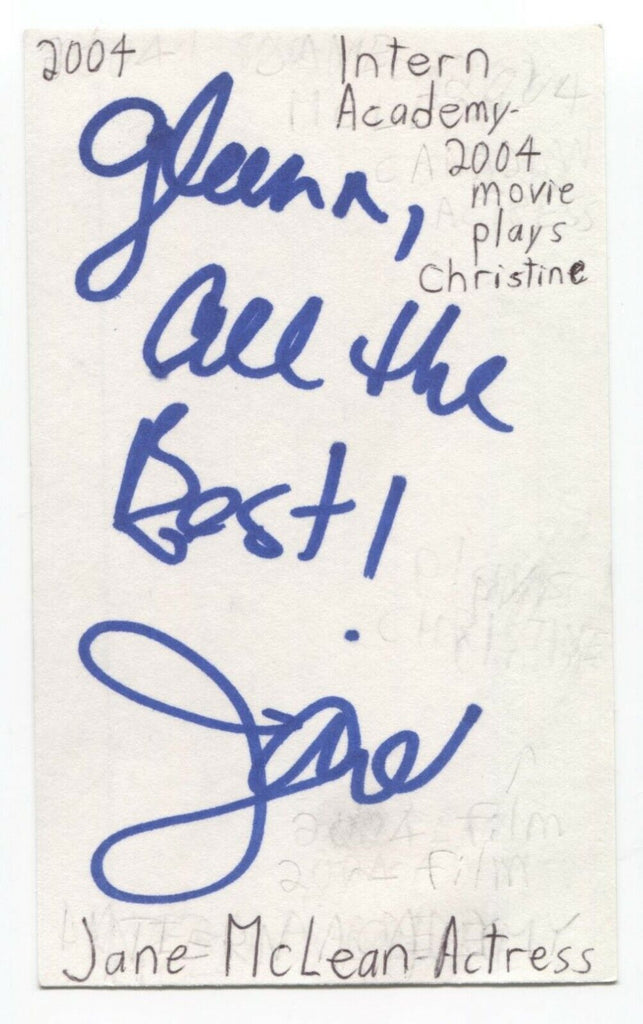 2004
Intern
Academy-
2004
movie
plays
Christine
Glenn,
All the
Best!
Jane
Jane McLean-Actress
2004 film
2004 film